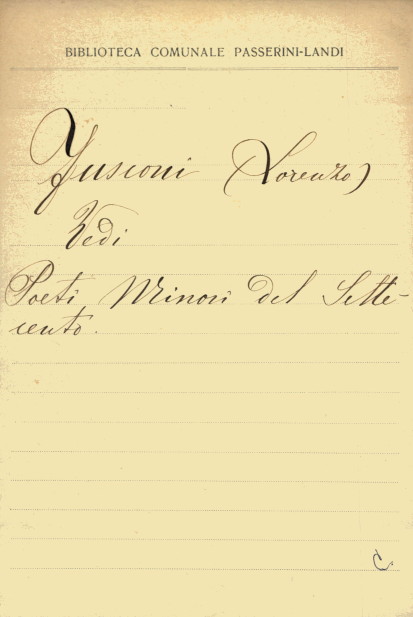 BIBLIOTECA COMUNALE PASSERINI-LANDI
Fusconi (Lorenzo)
Vedi
Poeti Minori del Sette-
cento.
C